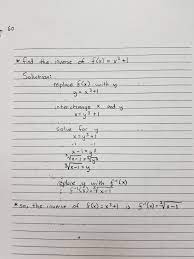 60
* find the inverse of f(x) = x³+1
Solution:
replace f(x) with y
y = x³+1
interchange x and y
x = y³+1
solve for y
x = y³+1
-1 -1
x-1 = y³
∛x-1 = ∛y³
∛x-1 = y
replace y with f⁻¹(x)
f⁻¹(x) = ∛x-1
* so, the inverse of f(x) = x³+1 is f⁻¹(x) = ∛x-1